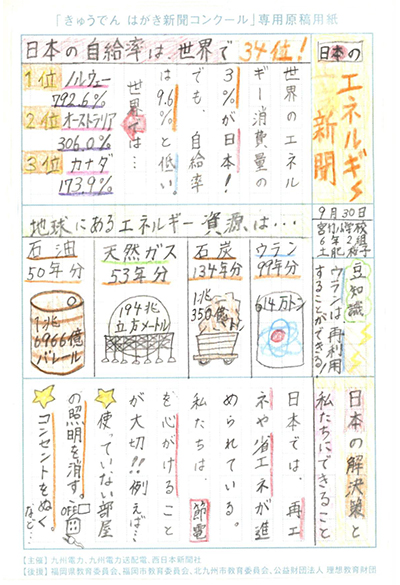 「きゅうでん はがき新聞コンクール」専用原稿用紙
日本のエネルギー新聞
9月30日
日本の自給率は、世界で34位!
世界のエネル
ギー消費量の
3%が日本!
でも、自給率
は9.6%と低い。
世界では…
1位 ノルウェー
792.6%
2位 オーストラリア
306.0%
3位 カナダ
173.9%
豆知識
ウランは再利用
することができる!
地球にあるエネルギー資源は…
石油
50年分
1兆
6966億
バレル
天然ガス
53年分
194兆
立方メートル
石炭
134年分
1兆
350億
トン
ウラン
99年分
614万トン
日本の解決策と
私たちにできること
日本では、再エ
ネや省エネが進
められている。
私たちは、節電
を心がけること
が大切!!例えば…
使っていない部屋
の照明を消す。
OFF
コンセントをぬく。
など…
【主催】九州電力、九州電力送配電、西日本新聞社
【後援】福岡県教育委員会、福岡市教育委員会、北九州市教育委員会、公益財団法人 理想教育財団